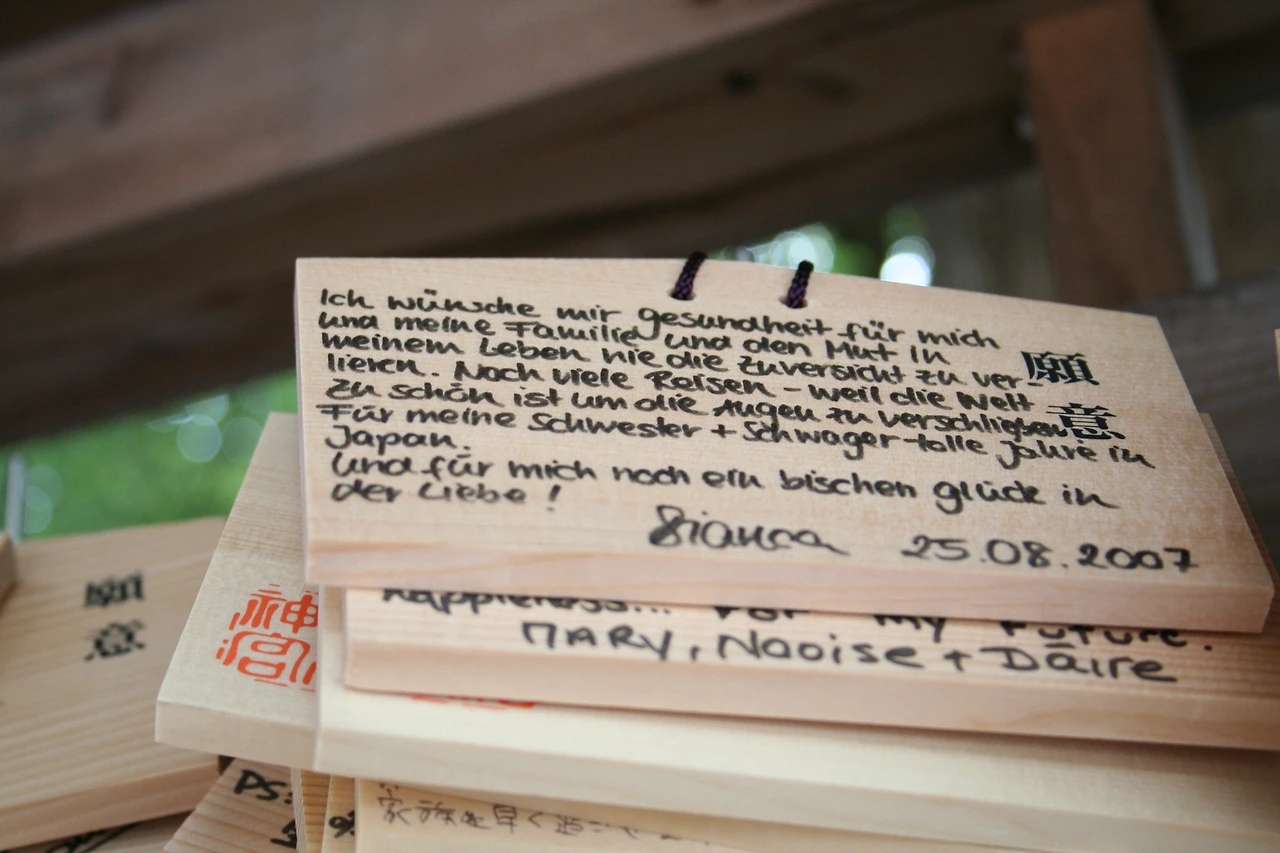 Ich wünsche mir gesundheit für mich
und meine Familie und den Mut in
meinem Leben nie die Zuversicht zu ver-
lieren. Noch viele Reisen - weil die Welt
zu schön ist um die Augen zu verschließen
Für meine Schwester + Schwager tolle Jahre in
Japan.
und für mich noch ein bischen glück in
der Liebe!
Bianca 25.08.2007
願
意
happieness... For my Future.
MARY, Naoise + Dāire
願
意
神
宮
PS:
家族
早く